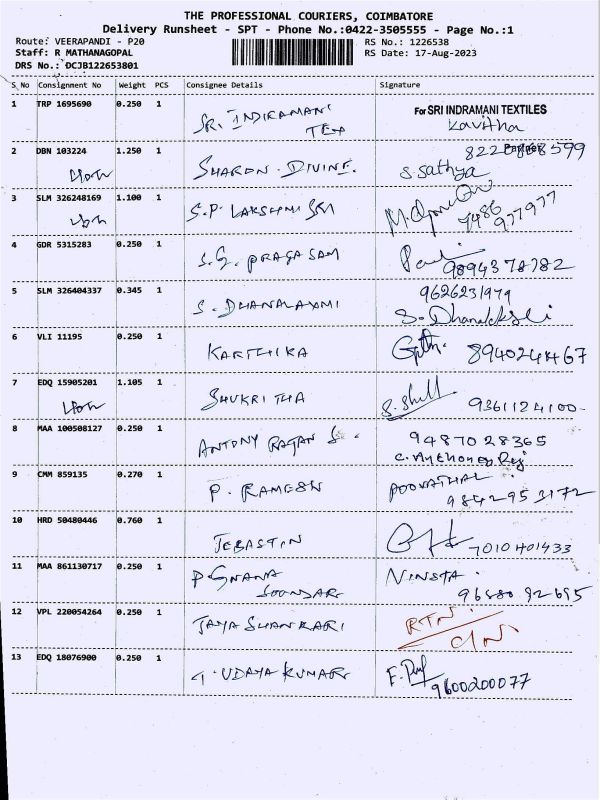 THE PROFESSIONAL COURIERS, COIMBATORE
Delivery Runsheet - SPT - Phone No.:0422-3505555 - Page No.:1
Route: VEERAPANDI - P20 RS No.: 1226538
Staff: R MATHANAGOPAL RS Date: 17-Aug-2023
DRS No.: OCJB122653801
S_No Consignment No Weight PCS Consignee Details Signature
1 TRP 1695690 0.250 1 SR. INDIRAMANI TEX For SRI INDRAMANI TEXTILES
Kavitha
2 DBN 103224 1.250 1 SHARON. DIVINE. S. Sathya
3 SLM 326248169 1.100 1 S.P. LAKSHMI SRI 7486 977977
4 GDR 5315283 0.250 1 S.G. PRAGASAM 9894378782
5 SLM 326404337 0.345 1 S. DHANALAXMI 9626231979
6 VLI 11195 0.250 1 KARTHIKA 8940244467
7 EDQ 15905201 1.105 1 SHUKRITHA 9361124100
8 MAA 100508127 0.250 1 ANTONY RAJAN S. 9487028365
9 CMM 859135 0.270 1 P. RAMESH POOVATHAL
9842953172
10 HRD 50480446 0.760 1 JEBASTIN 7010401433
11 MAA 861130717 0.250 1 P GNANA SOONDARI NINSTA.
12 VPL 220054264 0.250 1 JAYA SHANKARI RTN.
C/N
13 EDQ 18076900 0.250 1 T. UDAYA KUMAR 9600200077